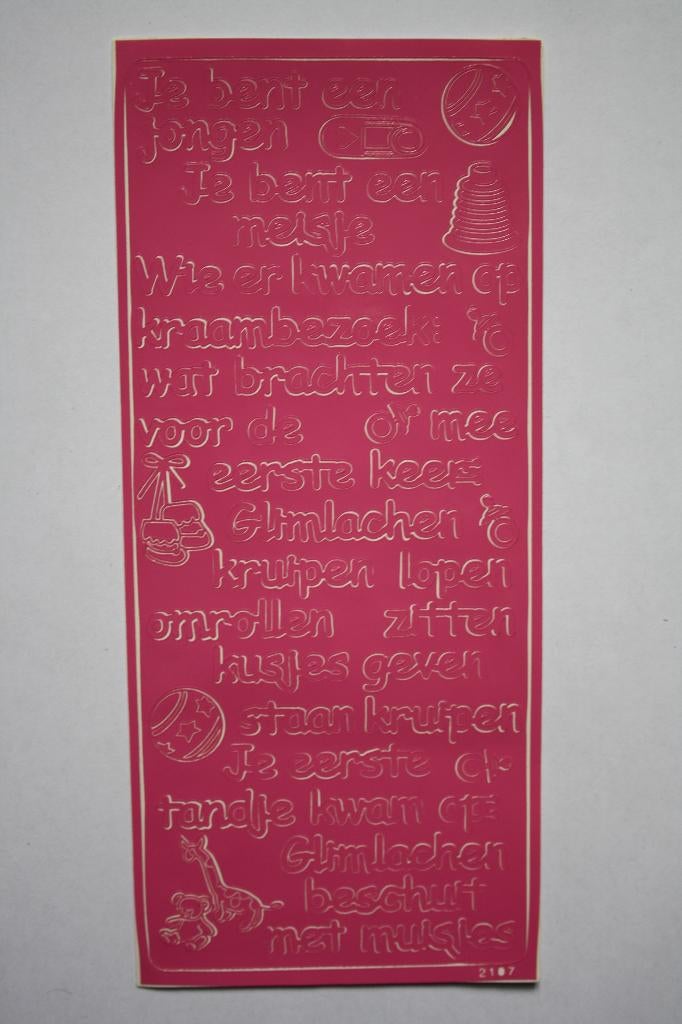 Je bent een
jongen
Je bent een
meisje
Wie er kwamen op
kraambezoek:
wat brachten ze
voor de mee
eerste keer
Glimlachen
kruipen lopen
omrollen zitten
kusjes geven
staan kruipen
Je eerste op
tandje kwam op:
Glimlachen
beschuit
met muisjes
2107